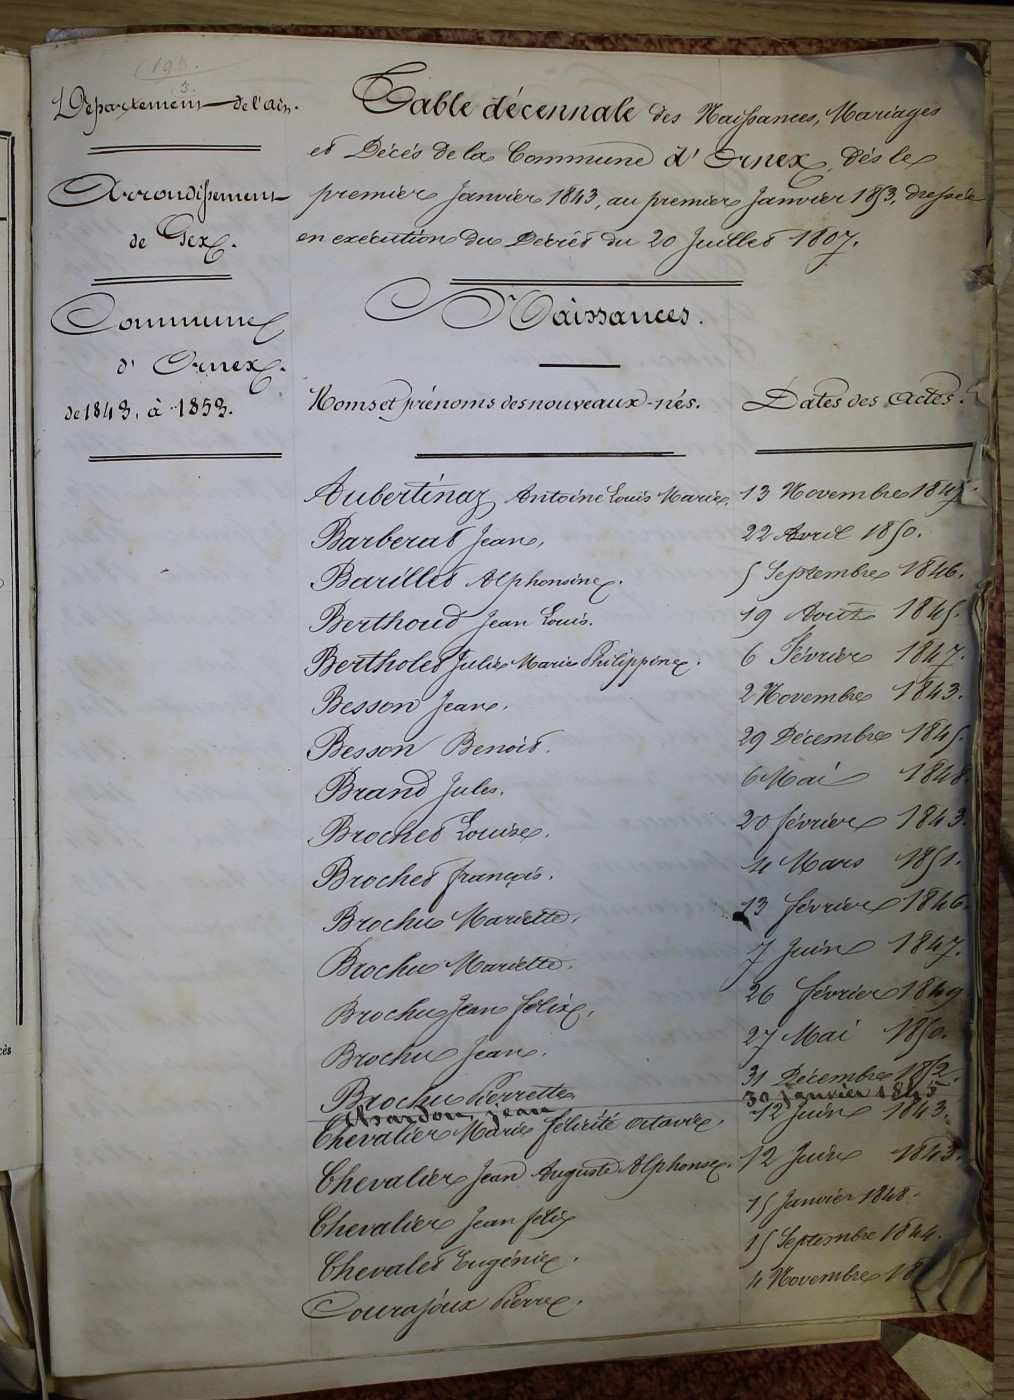 193.
3.
Département de l'ain.
Arrondissement
de Gex.
Commune
d' Ornex.
de 1843, à 1853.
Table décennale des Naissances, Mariages
et Décès de la Commune d' Ornex, dès le
premier Janvier 1843, au premier Janvier 1853, dressée
en exécution du Décret du 20 Juillet 1807.
Naissances.
Noms et prénoms des nouveaux-nés. Dates des Actes.
Aubertinaz Antoine Louis Marie. 13 Novembre
Barberat Jean, 22 Avril 1850.
Barillet Alphonsine. 5 Septembre 1846.
Berthoud Jean Louis. 19 Aout 1845.
Bertholet Julie Marie Philippine. 6 Février 1847.
Besson Jean. 2 Novembre 1843.
Besson Benoit. 29 Décembre 1845.
Brand Jules. 6 Mai 1848.
Brochet Louise. 20 février 1843.
Brochet françois. 4 Mars 1851.
Brochu Mariette. 23 février 1846.
Brochu Mariette. 7 Juin 1847.
Brochu Jean félix, 26 février 1849
Brochu Jean. 27 Mai 1850.
Brochu Pierrette 31 Décembre 1852.
Chardon, jean 30 janvier 1845
Chevalier Marie félicité octavie 12 Juin 1843.
Chevalier Jean Auguste Alphonse. 12 Juin 1843.
Chevalier Jean félix 15 Janvier 1848.
Chevalet Eugénie. 15 Septembre 1844.
Courajoux Pierre. 4 Novembre